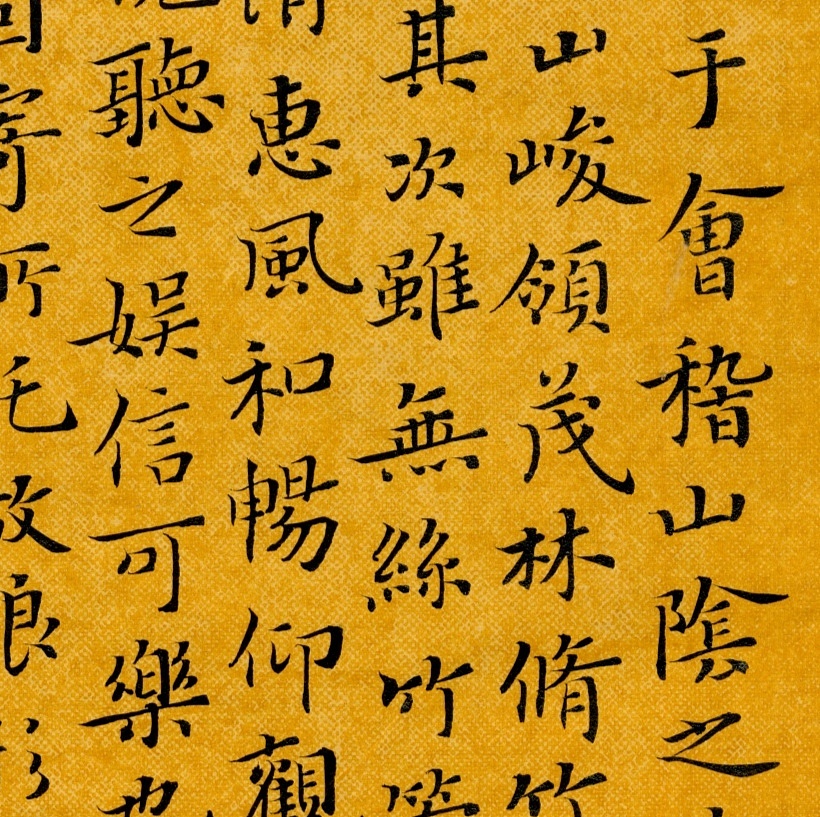 于會稽山陰之
山峻領茂林脩竹
其次雖無絲竹管
清惠風和暢仰觀
聽之娛信可樂也
寄所放浪